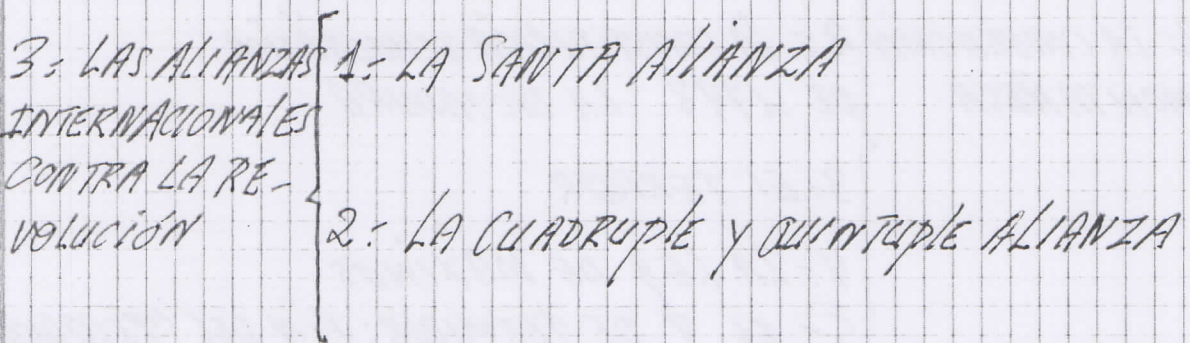 3: LAS ALIANZAS
INTERNACIONALES
CONTRA LA RE-
VOLUCIÓN
1: LA SANTA ALIANZA
2: LA CUADRUPLE Y QUINTUPLE ALIANZA